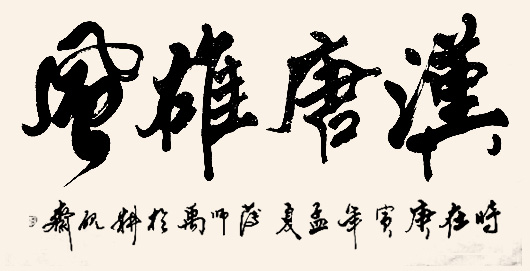 漢唐雄風
時在庚寅年孟夏薛帅禹於耕砚齋